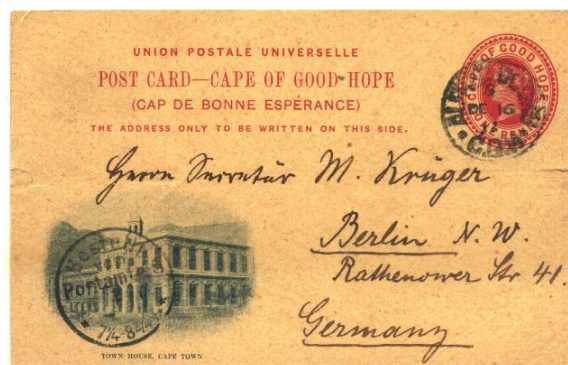 UNION POSTALE UNIVERSELLE
POST CARD—CAPE OF GOOD HOPE
(CAP DE BONNE ESPÉRANCE)
THE ADDRESS ONLY TO BE WRITTEN ON THIS SIDE.
CAPE OF GOOD HOPE
ONE PENNY
Herrn Secretär M. Krüger
Berlin N. W.
Rathenower Str 41.
Germany
TOWN HOUSE, CAPE TOWN.